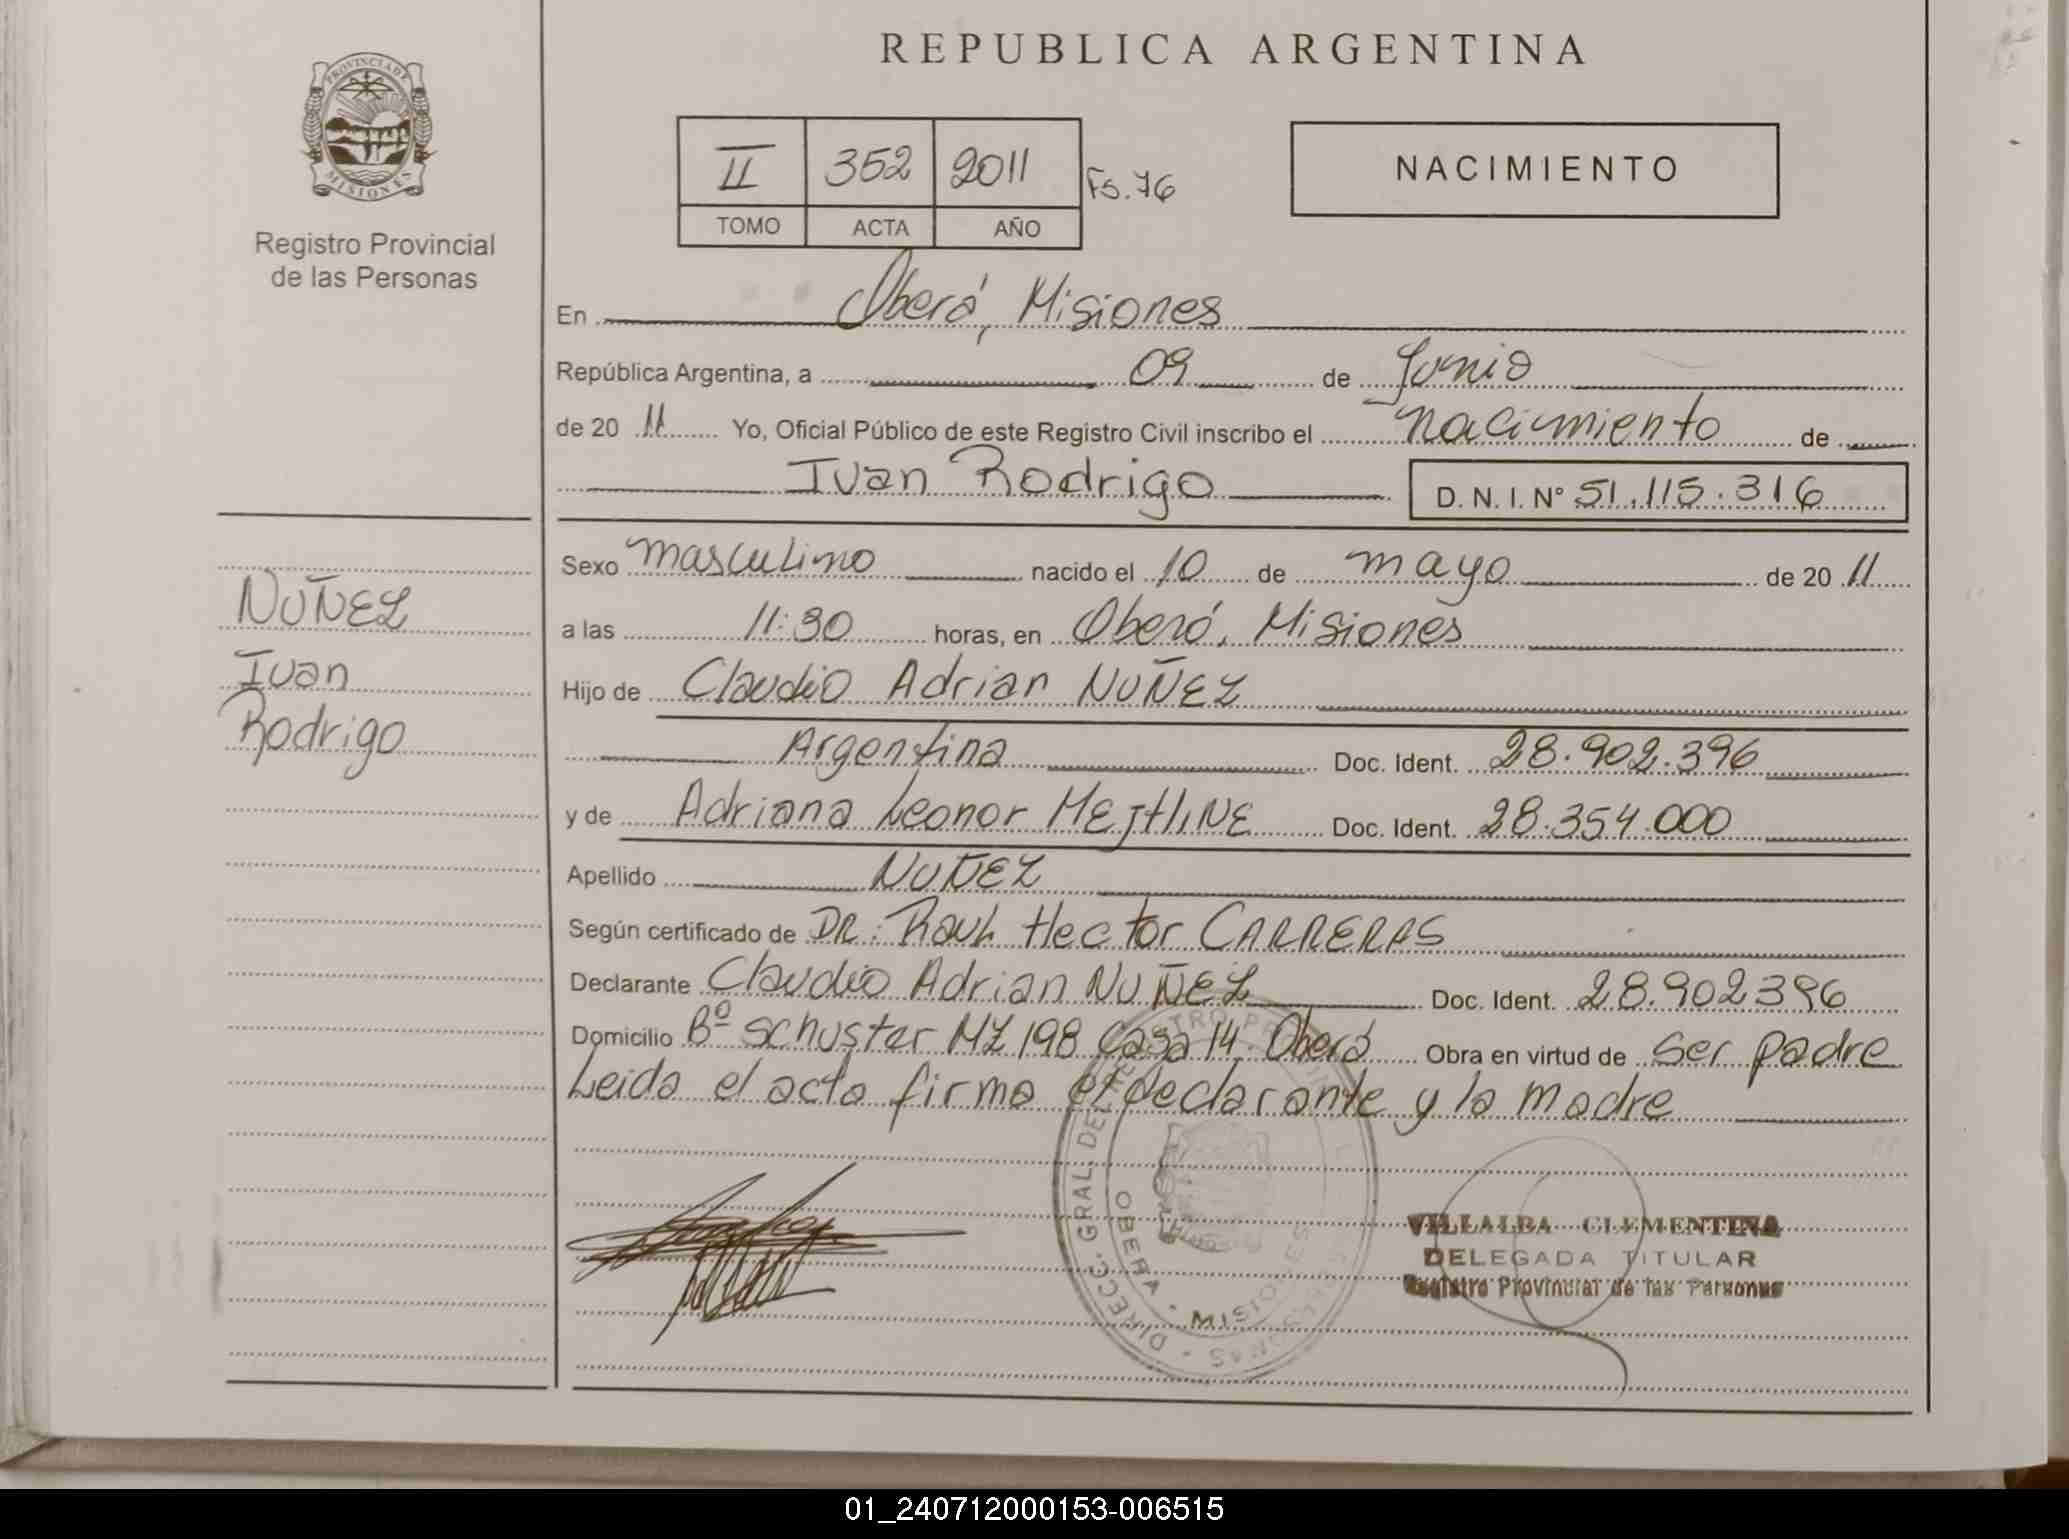 REPUBLICA ARGENTINA
PROVINCIA DE MISIONES
Registro Provincial
de las Personas
II 352 2011 Fs. 76
TOMO ACTA AÑO
NACIMIENTO
En Oberá, Misiones
República Argentina, a 09 de Junio
de 20 11 Yo, Oficial Público de este Registro Civil inscribo el nacimiento de
Ivan Rodrigo D. N. I. Nº 51.115.316
NUÑEZ
Ivan
Rodrigo
Sexo masculino nacido el 10 de mayo de 20 11
a las 11:30 horas, en Oberá, Misiones
Hijo de Claudio Adrian NUÑEZ
Argentina Doc. Ident. 28.902.396
y de Adriana Leonor MEJHLINE Doc. Ident. 28.354.000
Apellido NUÑEZ
Según certificado de DR: Raul Hector CARRERAS
Declarante Claudio Adrian NUÑEZ Doc. Ident. 28.902396
Domicilio Bº Schuster MZ 198 Casa 14. Oberá Obra en virtud de Ser padre
Leida el acta firma el declarante y la madre
DIRECC. GRAL. DEL REGISTRO PROVINCIAL DE LAS PERSONAS
OBERA - MISIONES
VILLALBA CLEMENTINA
DELEGADA TITULAR
Registro Provincial de las Personas
01_240712000153-006515